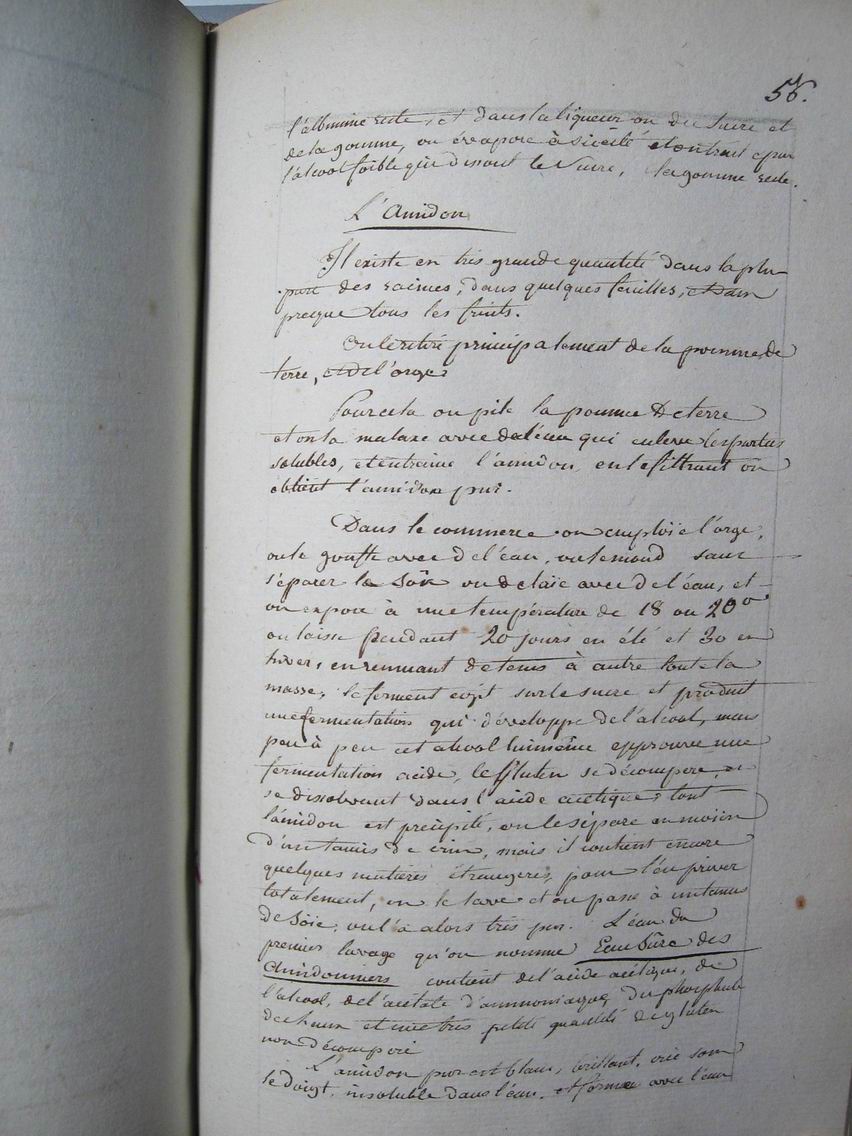 56.
l'albumine reste, et dans la liqueur on du sucre et
de la gomme, on évapore à siccité et on trait par
l'alcool foible qui dissout le sucre, la gomme reste.
L'Amidon
Il existe en très grande quantité dans la plu-
part des racines, dans quelques feuilles, et dans
presque tous les fruits.
On le retire principalement de la pomme de
terre, et de l'orge.
Pour cela on pile la pomme de terre
et on la malaxe avec de l'eau qui enleve les parties
solubles, et entraine l'amidon, en le filtrant on
obtient l'amidon pur.
Dans le commerce on emploïe l'orge,
on le gonfle avec de l'eau, on le moud sans
séparer le Son on delaïe avec de l'eau, et
on expose à une température de 18 ou 20°
on laisse pendant 20 jours en été et 30 en
hiver, en remuant de tems à autre toute la
masse, le ferment agit sur le sucre et produit
une fermentation qui développe de l'alcool, mais
peu à peu cet alcool lui même epprouve une
fermentation acide, le Gluten se décompose,
se dissolvant dans l'acide acétique, tout
l'amidon est précipité, on le sépare au moïen
d'un tamis de crin, mais il contient encore
quelques matières étrangeres, pour l'en priver
totalement, on le lave et on passe à un tamis
de Soïe, on l'a alors très pur. L'eau du
premier lavage qu'on nomme Eau Sûre des
Amidonniers contient de l'acide acétique, de
l'alcool, de l'acétate d'ammoniaque, du phosphate
de chaux et une très petite quantité de gluten
non décomposé
L'amidon pur est blanc, brillant, crie sous
le doigt, insoluble dans l'eau. et forme avec l'eau